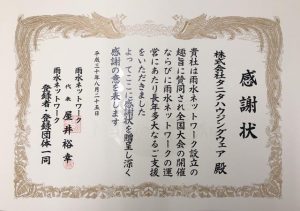 感謝状
株式会社タニタハウジングウェア 殿
貴社は雨水ネットワーク設立の
趣旨に賛同され全国大会の開催
ならびに雨水ネットワークの運
営にあたり長年多大なるご支援
をいただきました
よってここに感謝状を贈呈し深く
感謝の意を表します
平成三十年八月二十五日
雨水ネットワーク
代表 屋井裕幸
雨水ネットワーク
登録者・登録団体一同